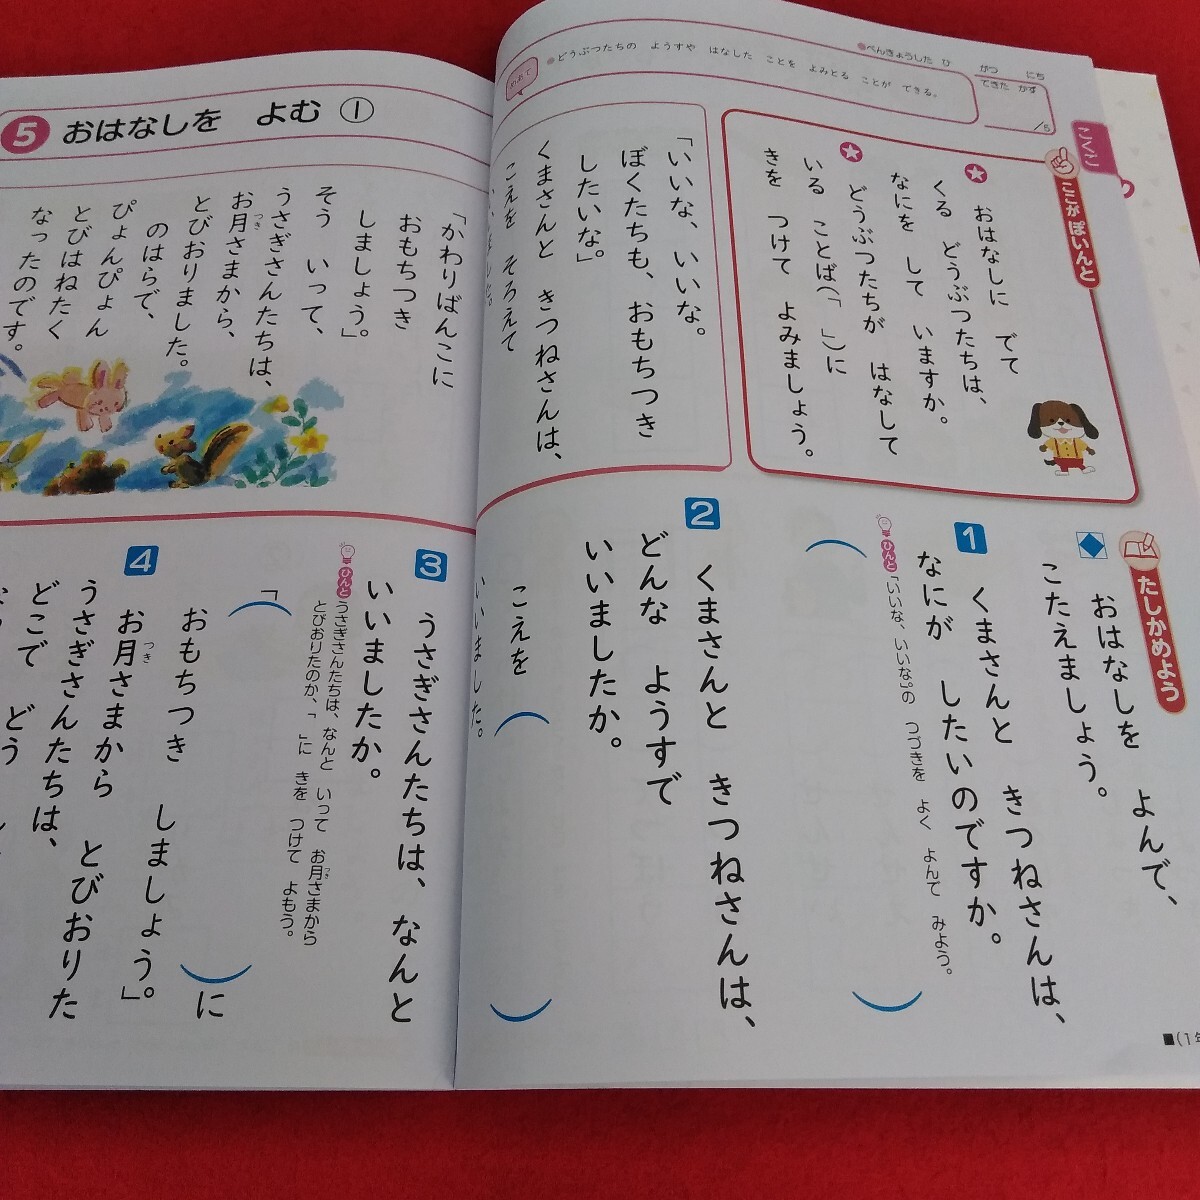 こくご
べんきょうした ひ
がつ にち
できた かず
/5
めあて
どうぶつたちの ようすや はなした ことを よみとる ことが できる。
ここが ぽいんと
おはなしに でて
くる どうぶつたちは、
なにを して いますか。
どうぶつたちが はなして
いる ことば(「 」)に
きを つけて よみましょう。
「いいな、いいな。
ぼくたちも、おもちつき
したいな。」
くまさんと きつねさんは、
こえを そろえて
たしかめよう
おはなしを よんで、
こたえましょう。
1
くまさんと きつねさんは、
なにが したいのですか。
ひんと
「いいな、いいな。」の つづきを よく よんで みよう。
2
くまさんと きつねさんは、
どんな ようすで
いいましたか。
こえを
いいました。
■(1年
5 おはなしを よむ ①
「かわりばんこに
おもちつき
しましょう。」
そう いって、
うさぎさんたちは、
お月さまから、
つき
とびおりました。
のはらで、
ぴょんぴょん
とびはねたく
なったのです。
3
うさぎさんたちは、なんと
いいましたか。
ひんと
うさぎさんたちは、なんと いって お月さまから
つき
とびおりたのか、「 」に きを つけて よもう。
「( )に
おもちつき しましょう。」
4
お月さまから とびおりた
つき
うさぎさんたちは、
どこで どう